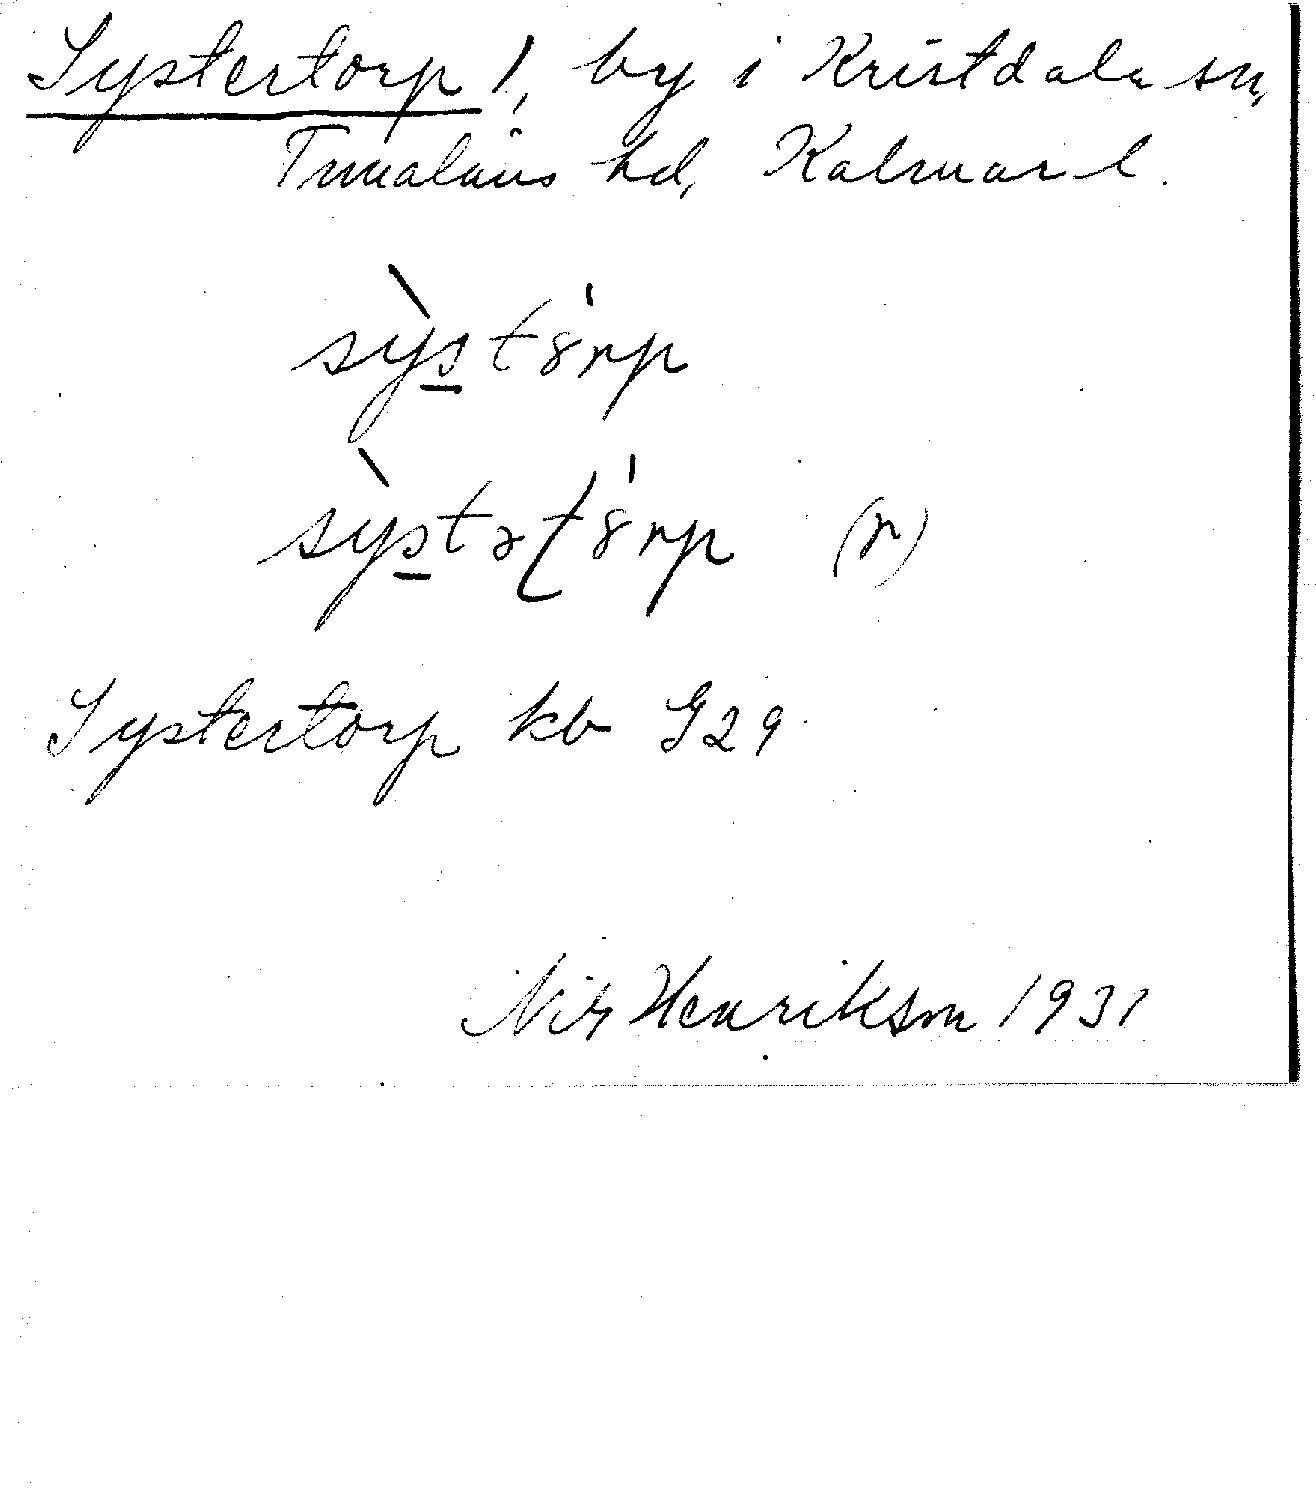 Systertorp 1, by i Kristdala sn,
Tunaläns hd, Kalmar l.
sỳst8́rp
sỳstəʈ8́rp (r)
Systertorp kb G29
Nils Henrikson 1931